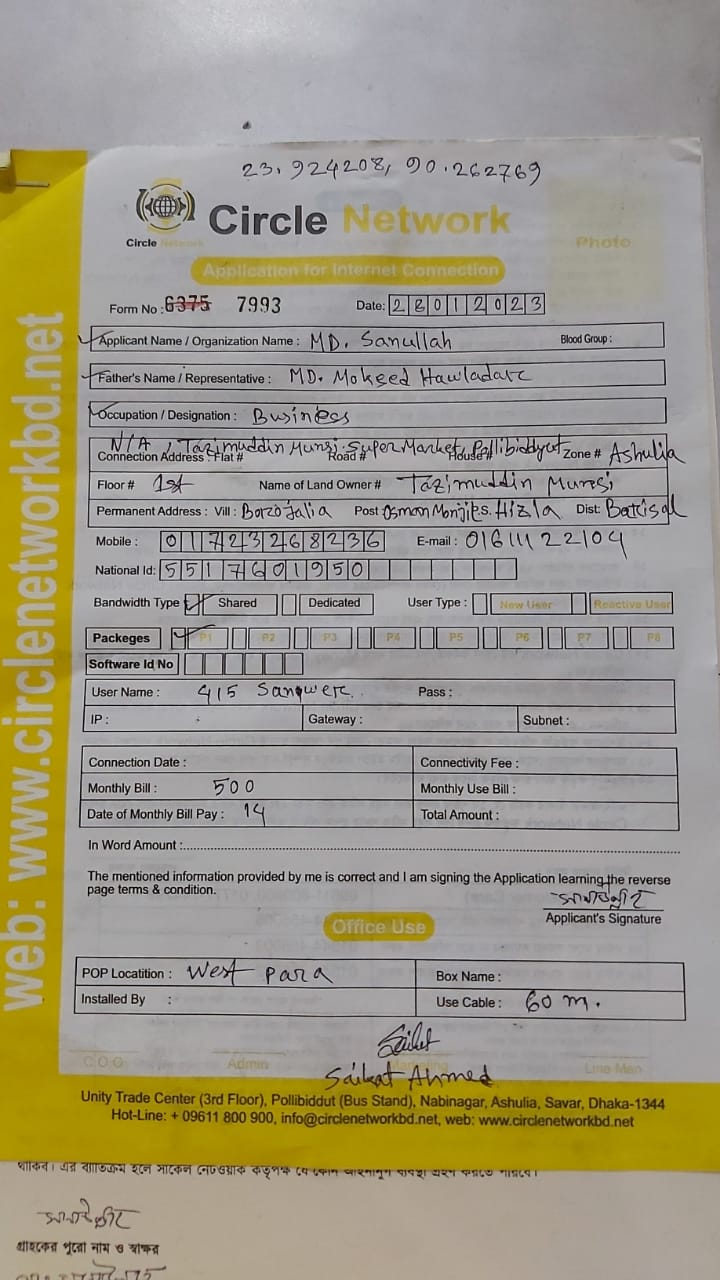 23.924208, 90.262769
Circle Network
Circle Network
Photo
Application for Internet Connection
Form No : 6375 7993 Date: 28012023
Applicant Name / Organization Name : MD. Sanullah Blood Group :
Father's Name / Representative : MD. Moksed Hawladarc
Occupation / Designation : Business
N/A, Tazimuddin Munsi Super Market, Pollibiddyut
Connection Address : Flat # Road # House # Zone # Ashulia
Floor # 1st Name of Land Owner # Tazimuddin Munsi
Permanent Address : Vill : Barojalia Post Osman Monjil P.S. Hizla Dist: Barisal
Mobile : 01723268236 E-mail : 01611122104
National Id: 5517601950
Bandwidth Type Shared Dedicated User Type : New User Reactive User
Packeges P1 P2 P3 P4 P5 P6 P7 P8
Software Id No
User Name : 415 Sanower Pass :
IP : Gateway : Subnet :
Connection Date : Connectivity Fee :
Monthly Bill : 500 Monthly Use Bill :
Date of Monthly Bill Pay : 14 Total Amount :
In Word Amount :
The mentioned information provided by me is correct and I am signing the Application learning the reverse
page terms & condition.
সানাউল্লাহ
Applicant's Signature
Office Use
POP Locatition : West para Box Name :
Installed By : Use Cable : 60 m.
Saikat
C.O.O Admin Marketing Line Man
Saikat Ahmed
Unity Trade Center (3rd Floor), Pollibiddut (Bus Stand), Nabinagar, Ashulia, Savar, Dhaka-1344
Hot-Line: + 09611 800 900, info@circlenetworkbd.net, web: www.circlenetworkbd.net
web: www.circlenetworkbd.net
থাকিব। এর ব্যতিক্রম হলে সার্কেল নেটওয়ার্ক কর্তৃপক্ষ যে কোন আইনানুগ ব্যবস্থা গ্রহণ করিতে পারিবে।
সানাউল্লাহ
গ্রাহকের পুরো নাম ও স্বাক্ষর